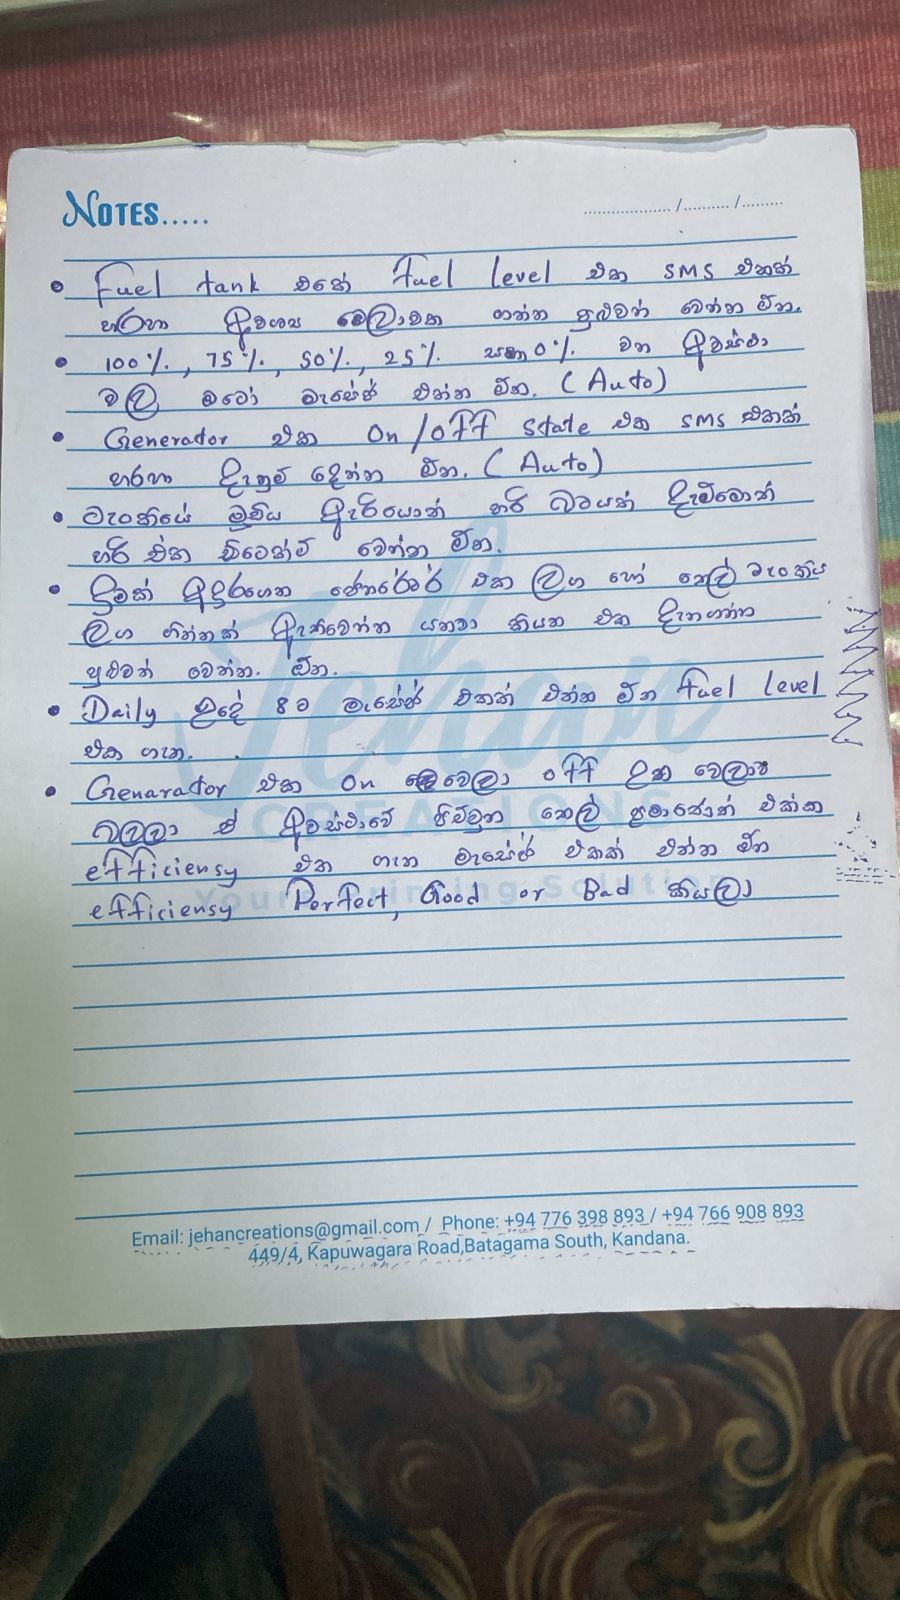 NOTES.....
.................... /........... /..........
• Fuel tank එකේ fuel level එක SMS එකක්
හරහා අවශ්‍ය වෙලාවක ගන්න පුළුවන් වෙන්න ඕන.
• 100%, 75%, 50%, 25% සහ 0% වන අවස්ථා
වල ඔටෝ මැසේජ් එන්න ඕන. (Auto)
• Generador එක On/off State එක SMS එකක්
හරහා දැනුම් දෙන්න ඕන. (Auto)
• ටැංකියේ මූඩිය ඇරියොත් හරි බටයක් දැම්මොත්
හරි ඒක ඩිටෙක්ට් වෙන්න ඕන.
• දුමක් අඳුරගෙන ජෙනරේටර් එක ලග හෝ තෙල් ටැංකිය
ලග ගින්නක් ඇතිවෙන්න යනවා කියන එක දැනගන්න
පුළුවන් වෙන්න. ඕන.
• Daily උදේ 8ට මැසේජ් එකක් එන්න ඕන fuel level
එක ගැන.
• Genarador එක On වෙලා off උන වෙලාව
බලලා ඒ අවස්ථාවේ පිච්චුන තෙල් ප්‍රමාණෙත් එක්ක
efficiensy එක ගැන මැසේජ් එකක් එන්න ඕන
efficiensy Perfect, Good or Bad කියලා
Jehan
CREATIONS
Your Printing Solution
Email: jehancreations@gmail.com / Phone: +94 776 398 893 / +94 766 908 893
449/4, Kapuwagara Road,Batagama South, Kandana.